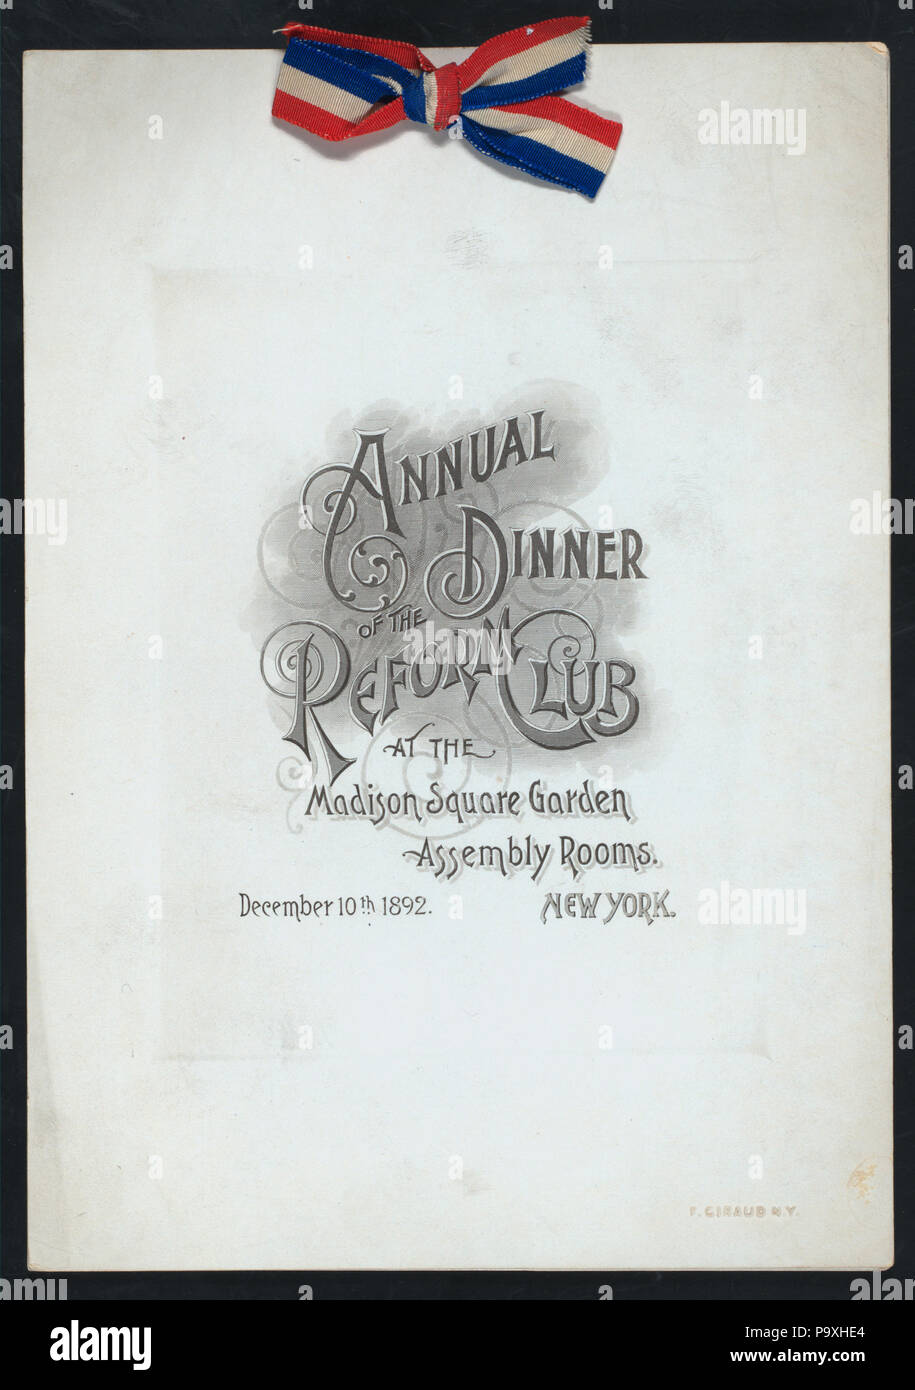 ANNUAL
DINNER
OF THE
REFORM CLUB
AT THE
Madison Square Garden
Assembly Rooms.
December 10th 1892.
NEW YORK.
F. GIRAUD N.Y.
alamy
alamy
Image ID: P9XHE4
www.alamy.com